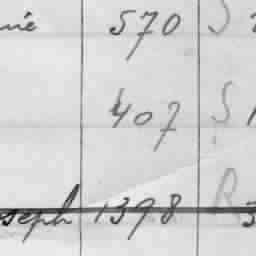 570 S
407 S
seph 1398 R